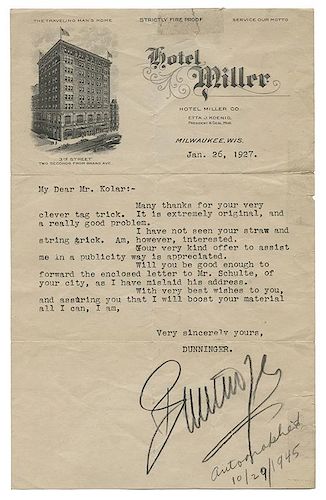 THE TRAVELING MAN'S HOME STRICTLY FIRE PROOF SERVICE OUR MOTTO
Hotel
Miller
HOTEL MILLER CO.
ETTA J. KOENIG,
PRESIDENT & GEN'L MGR.
3RD STREET
TWO SECONDS FROM GRAND AVE.
MILWAUKEE, WIS.
Jan. 26, 1927.
My Dear Mr. Kolar:-
Many thanks for your very
clever tag trick. It is extremely original, and
a really good problem.
I have not seen your straw and
string trick. Am, however, interested.
Your very kind offer to assist
me in a publicity way is appreciated.
Will you be good enough to
forward the enclosed letter to Mr. Schulte, of
your city, as I have mislaid his address.
With very best wishes to you,
and assuring you that I will boost your material
all I can, I am,
Very sincerely yours,
DUNNINGER.
Dunninger
Autographed
10/29/1945